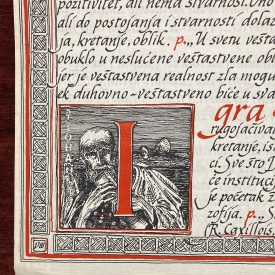 pozitivitet, ali nema stvarnosti. Ono
ali do postojanja i stvarnosti dolaz
ja, kretanje, oblik. p. „U svetu vešta
obuklo u neslućene veštastvene obl
jer je veštastvena realnost zla mogu
ek duhovno-veštastveno biće u sva
I gra
rugojačiva
kretanje, is
ci. Sve što
će instituci
je početak ž
zofija. p. „
(R. Caxillois.